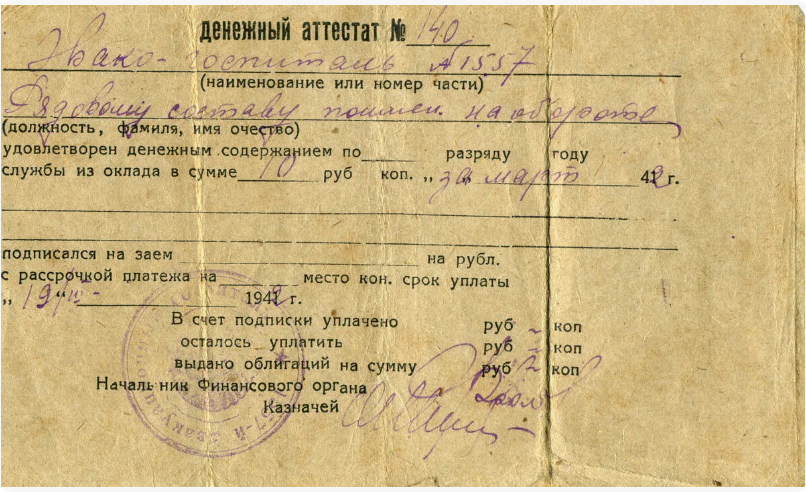 денежный аттестат № 140
Эвако-госпиталь №1557
(наименование или номер части)
Рядовому составу поимен. на обороте
(должность, фамиля, имя очество)
удовлетворен денежным содержанием по разряду году
службы из оклада в сумме 10 руб коп. „ за март 1942 г.
подписался на заем на рубл.
с рассрочкой платежа на место кон. срок уплаты
„ 19/III - “ 1942 г.
В счет подписки уплачено руб – коп
осталось уплатить руб – коп
выдано облигаций на сумму руб коп
Начальник Финансового органа
Казначей